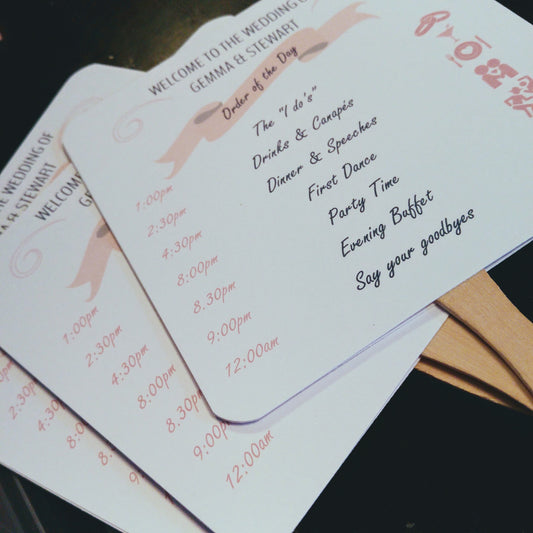 WELCOME TO THE WEDDING OF
GEMMA & STEWART
Order of the Day
1:00pm The "I do's"
2:30pm Drinks & Canapés
4:30pm Dinner & Speeches
8:00pm First Dance
8.30pm Party Time
9:00pm Evening Buffet
12:00am Say your goodbyes
WELCOME TO
1:00pm
2:30pm
4:30pm
8:00pm
8.30pm
9:00pm
12:00am
THE WEDDING OF
A & STEWART
2:30pm
4:30pm
8:00pm